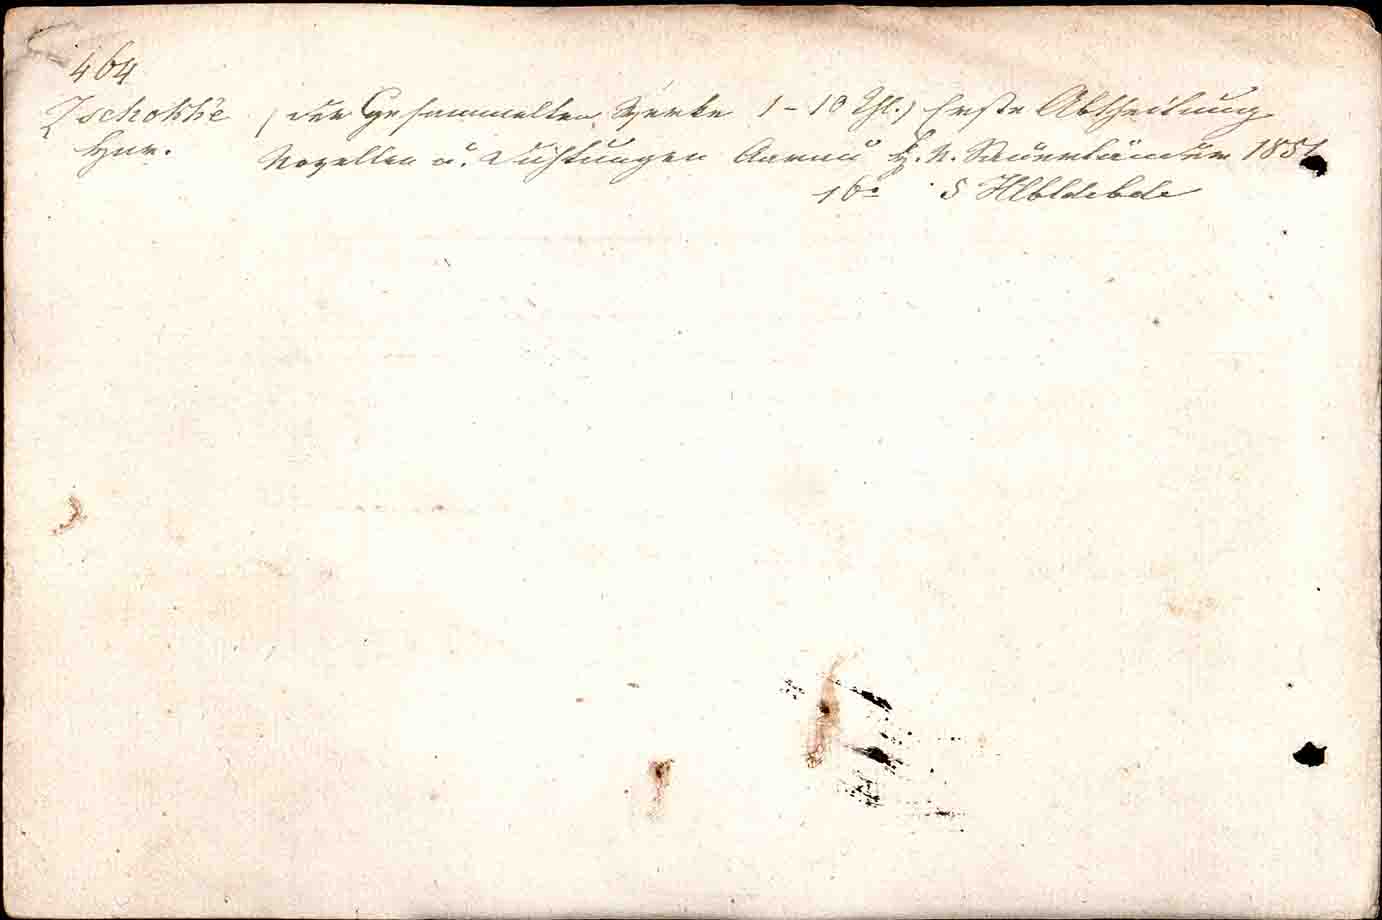 464
Zschokke (der Gesammelten Werke 1-10 Thl.) Erste Abtheilung
Hnr. Novellen u. Dichtungen Aarau H. R. Sauerländer 1851
16° 5 Hlbldrbde